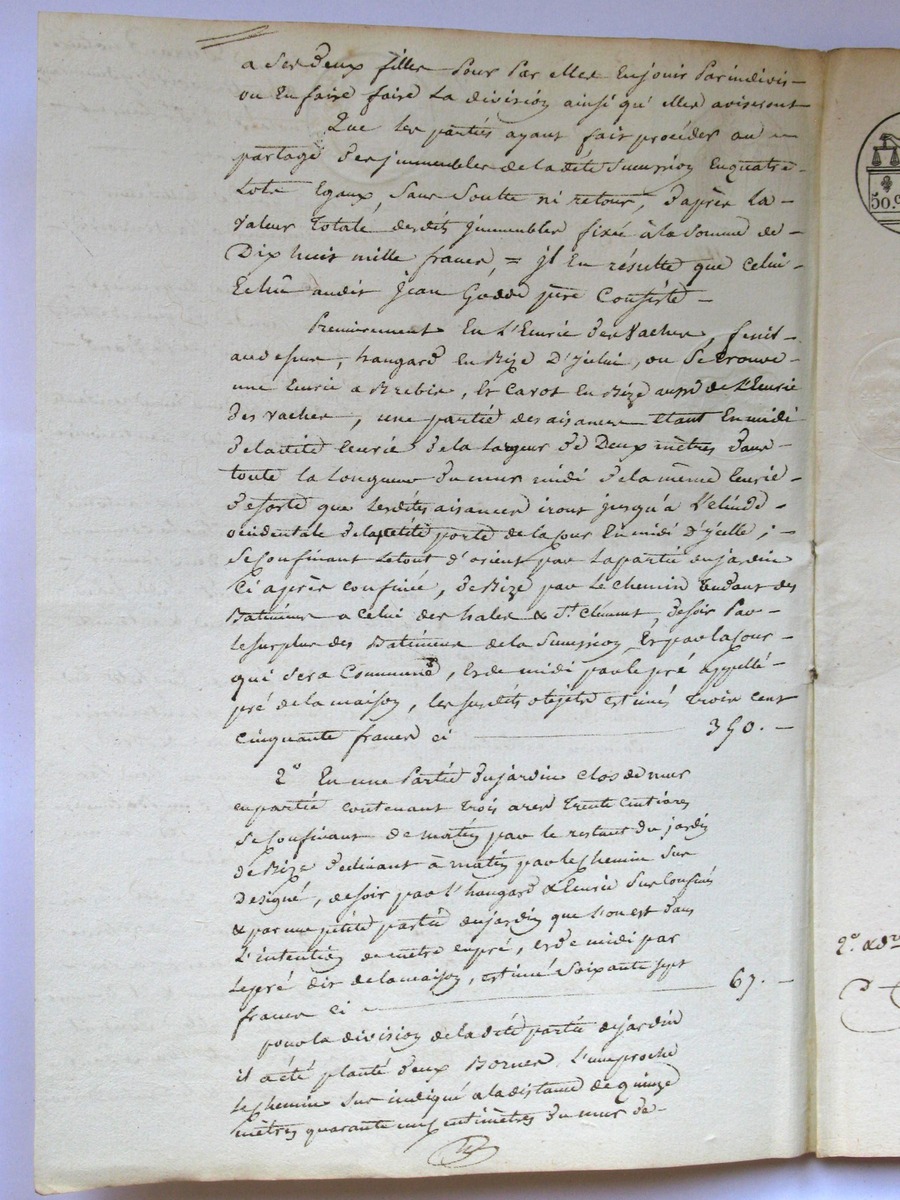 a ses deux filles pour par elles en jouir par indivis
ou En faire faire La division ainsi qu'elles aviseront
Que les parties ayant fait procéder au
partage des jmmeubles de la dite Succession En quatre
Lots Egaux, Sans Soulte ni retour, d'après La
valeur Totale desdits jmmeubles fixée à la Somme de
Dix huit mille francs, = jl En résulte que celui
Echû audit jean Godde père Consiste
Premierement En L'Eurie des Vaches, fenil
au dessus, hangard en Bize D'jcelui, ou Se trouve
une Eurie a Brebis, Et Carot En Bize aussi de L'Eurie
des vaches, une partie des aisances Etant En midi
de la dite Eeurie de la Largeur de Deux mètres dans
toute la Longueur du mur midi de la même Eeurie
de Sorte que Lesdites aisances iront jusqu'à L'
occidentale de la petite porte de la Cour En midi D'jcelle ;
Se Confinant Le tout d'orient par La partie du jardin
Ci après confinée, de Bize par Le chemin Tendant des
Batimens a Celui des hales & St. Clément, de Soir Par
Le surplus des Batimens de la Succession Et par la Cour
qui Sera Commune, Et de midi par le pré appellé
pré de la maison, Les susdits objets Estimés trois cent
Cinquante francs ci 350. -
2° En une Partie du jardin clos de mur
en partie contenant trois ares trente Centiares
Se Confinant de matin par le restant du jardin
de Bize declinant à matin par le Chemin Sus
Designé, de Soir par l'hangard & Eeurie Sus Confinés
& par une petite partie du jardin que l'on est dans
L'intention de mettre en pré, et de midi par
Le pré dit de la maison, estimé Soixante Sept
francs Ci 67. -
pour la division de la dite partie de jardin
il a été planté deux Bornes L'une proche
Le Chemin Sus indiqué a la distance de quinze
mètres quarante neuf centimètres du mur de
50.
2°.